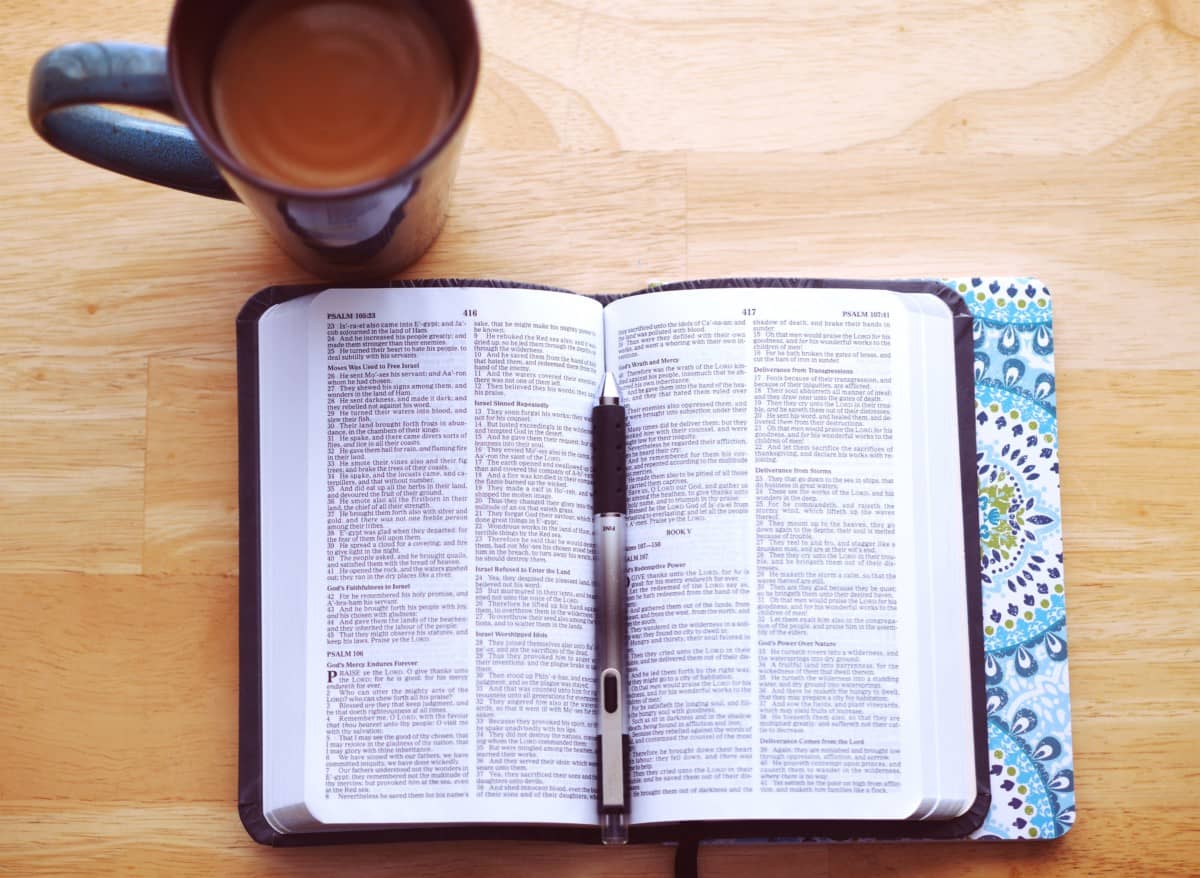 PSALM 105:23
416
23 Is'-ra-el also came into E'-gypt; and Ja'-
cob sojourned in the land of Ham.
24 And he increased his people greatly; and
made them stronger than their enemies.
25 He turned their heart to hate his people, to
deal subtilly with his servants.
Moses Was Used to Free Israel
26 He sent Mo'-ses his servant; and Aa'-ron
whom he had chosen.
27 They shewed his signs among them, and
wonders in the land of Ham.
28 He sent darkness, and made it dark; and
they rebelled not against his word.
29 He turned their waters into blood, and
slew their fish.
30 Their land brought forth frogs in abun-
dance, in the chambers of their kings.
31 He spake, and there came divers sorts of
flies, and lice in all their coasts.
32 He gave them hail for rain, and flaming fire
in their land.
33 He smote their vines also and their fig
trees; and brake the trees of their coasts.
34 He spake, and the locusts came, and cat-
erpillers, and that without number,
35 And did eat up all the herbs in their land,
and devoured the fruit of their ground.
36 He smote also all the firstborn in their
land, the chief of all their strength.
37 He brought them forth also with silver and
gold: and there was not one feeble person
among their tribes.
38 E'-gypt was glad when they departed: for
the fear of them fell upon them.
39 He spread a cloud for a covering; and fire
to give light in the night.
40 The people asked, and he brought quails,
and satisfied them with the bread of heaven.
41 He opened the rock, and the waters gushed
out; they ran in the dry places like a river.
God's Faithfulness to Israel
42 For he remembered his holy promise, and
A'-bra-ham his servant.
43 And he brought forth his people with joy,
and his chosen with gladness:
44 And gave them the lands of the heathen:
and they inherited the labour of the people;
45 That they might observe his statutes, and
keep his laws. Praise ye the LORD.
PSALM 106
God's Mercy Endures Forever
PRAISE ye the LORD. O give thanks unto
the LORD; for he is good: for his mercy
endureth for ever.
2 Who can utter the mighty acts of the
LORD? who can shew forth all his praise?
3 Blessed are they that keep judgment, and
he that doeth righteousness at all times.
4 Remember me, O LORD, with the favour
that thou bearest unto thy people: O visit me
with thy salvation;
5 That I may see the good of thy chosen, that
I may rejoice in the gladness of thy nation, that
I may glory with thine inheritance.
6 We have sinned with our fathers, we have
committed iniquity, we have done wickedly.
7 Our fathers understood not thy wonders in
E'-gypt; they remembered not the multitude of
thy mercies; but provoked him at the sea, even
at the Red sea.
8 Nevertheless he saved them for his name's
sake, that he might make his mighty power
to be known.
9 He rebuked the Red sea also, and it was
dried up: so he led them through the depths, as
through the wilderness.
10 And he saved them from the hand of him
that hated them, and redeemed them from the
hand of the enemy.
11 And the waters covered their enemies:
there was not one of them left.
12 Then believed they his words; they sang
his praise.
Israel Sinned Repeatedly
13 They soon forgat his works; they waited
not for his counsel:
14 But lusted exceedingly in the wilderness,
and tempted God in the desert.
15 And he gave them their request; but sent
leanness into their soul.
16 They envied Mo'-ses also in the camp,
and Aa'-ron the saint of the LORD.
17 The earth opened and swallowed up
18 And a fire was kindled in their
the flame burned up the wicked.
19 They made a calf in Ho'-reb, and
worshipped the molten image.
20 Thus they changed their glory into the
similitude of an ox that eateth grass.
21 They forgat God their saviour, which had
done great things in E'-gypt;
22 Wondrous works in the land of Ham, and
terrible things by the Red sea.
23 Therefore he said that he would
them, had not Mo'-ses his chosen stood
him in the breach, to turn away his wrath,
he should destroy them.
Israel Refused to Enter the Land
24 Yea, they despised the pleasant land, they
believed not his word:
25 But murmured in their tents, and
26 Therefore he lifted up his hand against
them, to overthrow them in the wilderness:
27 To overthrow their seed also among the
nations, and to scatter them in the lands.
Israel Worshipped Idols
28 They joined themselves also unto
and ate the sacrifices of the dead.
29 Thus they provoked him to anger with
their inventions: and the plague brake in
30 Then stood up Phin'-e-has, and executed
judgment: and so the plague was stayed.
31 And that was counted unto him for
righteousness unto all generations for evermore.
32 They angered him also at the waters of
strife, so that it went ill with Mo'-ses for their
sakes:
33 Because they provoked his spirit, so that
he spake unadvisedly with his lips.
34 They did not destroy the nations,
whom the LORD commanded them:
35 But were mingled among the heathen, and
learned their works.
36 And they served their idols: which were
a snare unto them.
37 Yea, they sacrificed their sons and their
daughters unto devils,
38 And shed innocent blood, even the blood
of their sons and of their daughters, whom
417
PSALM 107:41
they sacrificed unto the idols of Ca'-na-an: and
the land was polluted with blood.
39 Thus were they defiled with their own
works, and went a whoring with their own in-
ventions.
God's Wrath and Mercy
Therefore was the wrath of the LORD kin-
dled against his people, insomuch that he ab-
horred his own inheritance.
And he gave them into the hand of the hea-
then; and they that hated them ruled over
Their enemies also oppressed them, and
they were brought into subjection under their
Many times did he deliver them; but they
provoked him with their counsel, and were
brought low for their iniquity.
Nevertheless he regarded their affliction,
when he heard their cry:
And he remembered for them his cov-
enant, and repented according to the multitude
of his mercies.
He made them also to be pitied of all those
that carried them captives.
Save us, O LORD our God, and gather us
from among the heathen, to give thanks unto
thy holy name, and to triumph in thy praise.
Blessed be the LORD God of Is'-ra-el from
everlasting to everlasting: and let all the people
say, Amen. Praise ye the LORD.
BOOK V
Psalms 107—150
PSALM 107
God's Redemptive Power
O GIVE thanks unto the LORD, for he is
good: for his mercy endureth for ever.
Let the redeemed of the LORD say so,
whom he hath redeemed from the hand of the
enemy;
And gathered them out of the lands, from
the east, and from the west, from the north, and
from the south.
They wandered in the wilderness in a soli-
tary way; they found no city to dwell in.
Hungry and thirsty, their soul fainted in
them.
Then they cried unto the LORD in their
trouble, and he delivered them out of their dis-
tresses.
And he led them forth by the right way,
that they might go to a city of habitation.
Oh that men would praise the LORD for his
goodness, and for his wonderful works to the
children of men!
For he satisfieth the longing soul, and fill-
eth the hungry soul with goodness.
Such as sit in darkness and in the shadow
of death, being bound in affliction and iron;
Because they rebelled against the words of
God, and contemned the counsel of the most
High:
Therefore he brought down their heart
with labour; they fell down, and there was
none to help.
Then they cried unto the LORD in their
trouble, and he saved them out of their dis-
tresses.
He brought them out of darkness and the
shadow of death, and brake their bands in
sunder.
15 Oh that men would praise the LORD for his
goodness, and for his wonderful works to the
children of men!
16 For he hath broken the gates of brass, and
cut the bars of iron in sunder.
Deliverance from Transgressions
17 Fools because of their transgression, and
because of their iniquities, are afflicted.
18 Their soul abhorreth all manner of meat;
and they draw near unto the gates of death.
19 Then they cry unto the LORD in their trou-
ble, and he saveth them out of their distresses.
20 He sent his word, and healed them, and de-
livered them from their destructions.
21 Oh that men would praise the LORD for his
goodness, and for his wonderful works to the
children of men!
22 And let them sacrifice the sacrifices of
thanksgiving, and declare his works with re-
joicing.
Deliverance from Storms
23 They that go down to the sea in ships, that
do business in great waters;
24 These see the works of the LORD, and his
wonders in the deep.
25 For he commandeth, and raiseth the
stormy wind, which lifteth up the waves
thereof.
26 They mount up to the heaven, they go
down again to the depths: their soul is melted
because of trouble.
27 They reel to and fro, and stagger like a
drunken man, and are at their wit's end.
28 Then they cry unto the LORD in their trou-
ble, and he bringeth them out of their dis-
tresses.
29 He maketh the storm a calm, so that the
waves thereof are still.
30 Then are they glad because they be quiet;
so he bringeth them unto their desired haven.
31 Oh that men would praise the LORD for his
goodness, and for his wonderful works to the
children of men!
32 Let them exalt him also in the congrega-
tion of the people, and praise him in the assem-
bly of the elders.
God's Power Over Nature
33 He turneth rivers into a wilderness, and
the watersprings into dry ground;
34 A fruitful land into barrenness, for the
wickedness of them that dwell therein.
35 He turneth the wilderness into a standing
water, and dry ground into watersprings.
36 And there he maketh the hungry to dwell,
that they may prepare a city for habitation;
37 And sow the fields, and plant vineyards,
which may yield fruits of increase.
38 He blesseth them also, so that they are
multiplied greatly; and suffereth not their cat-
tle to decrease.
Deliverance Comes from the Lord
39 Again, they are minished and brought low
through oppression, affliction, and sorrow.
40 He poureth contempt upon princes, and
causeth them to wander in the wilderness,
where there is no way.
41 Yet setteth he the poor on high from afflic-
tion, and maketh him families like a flock.